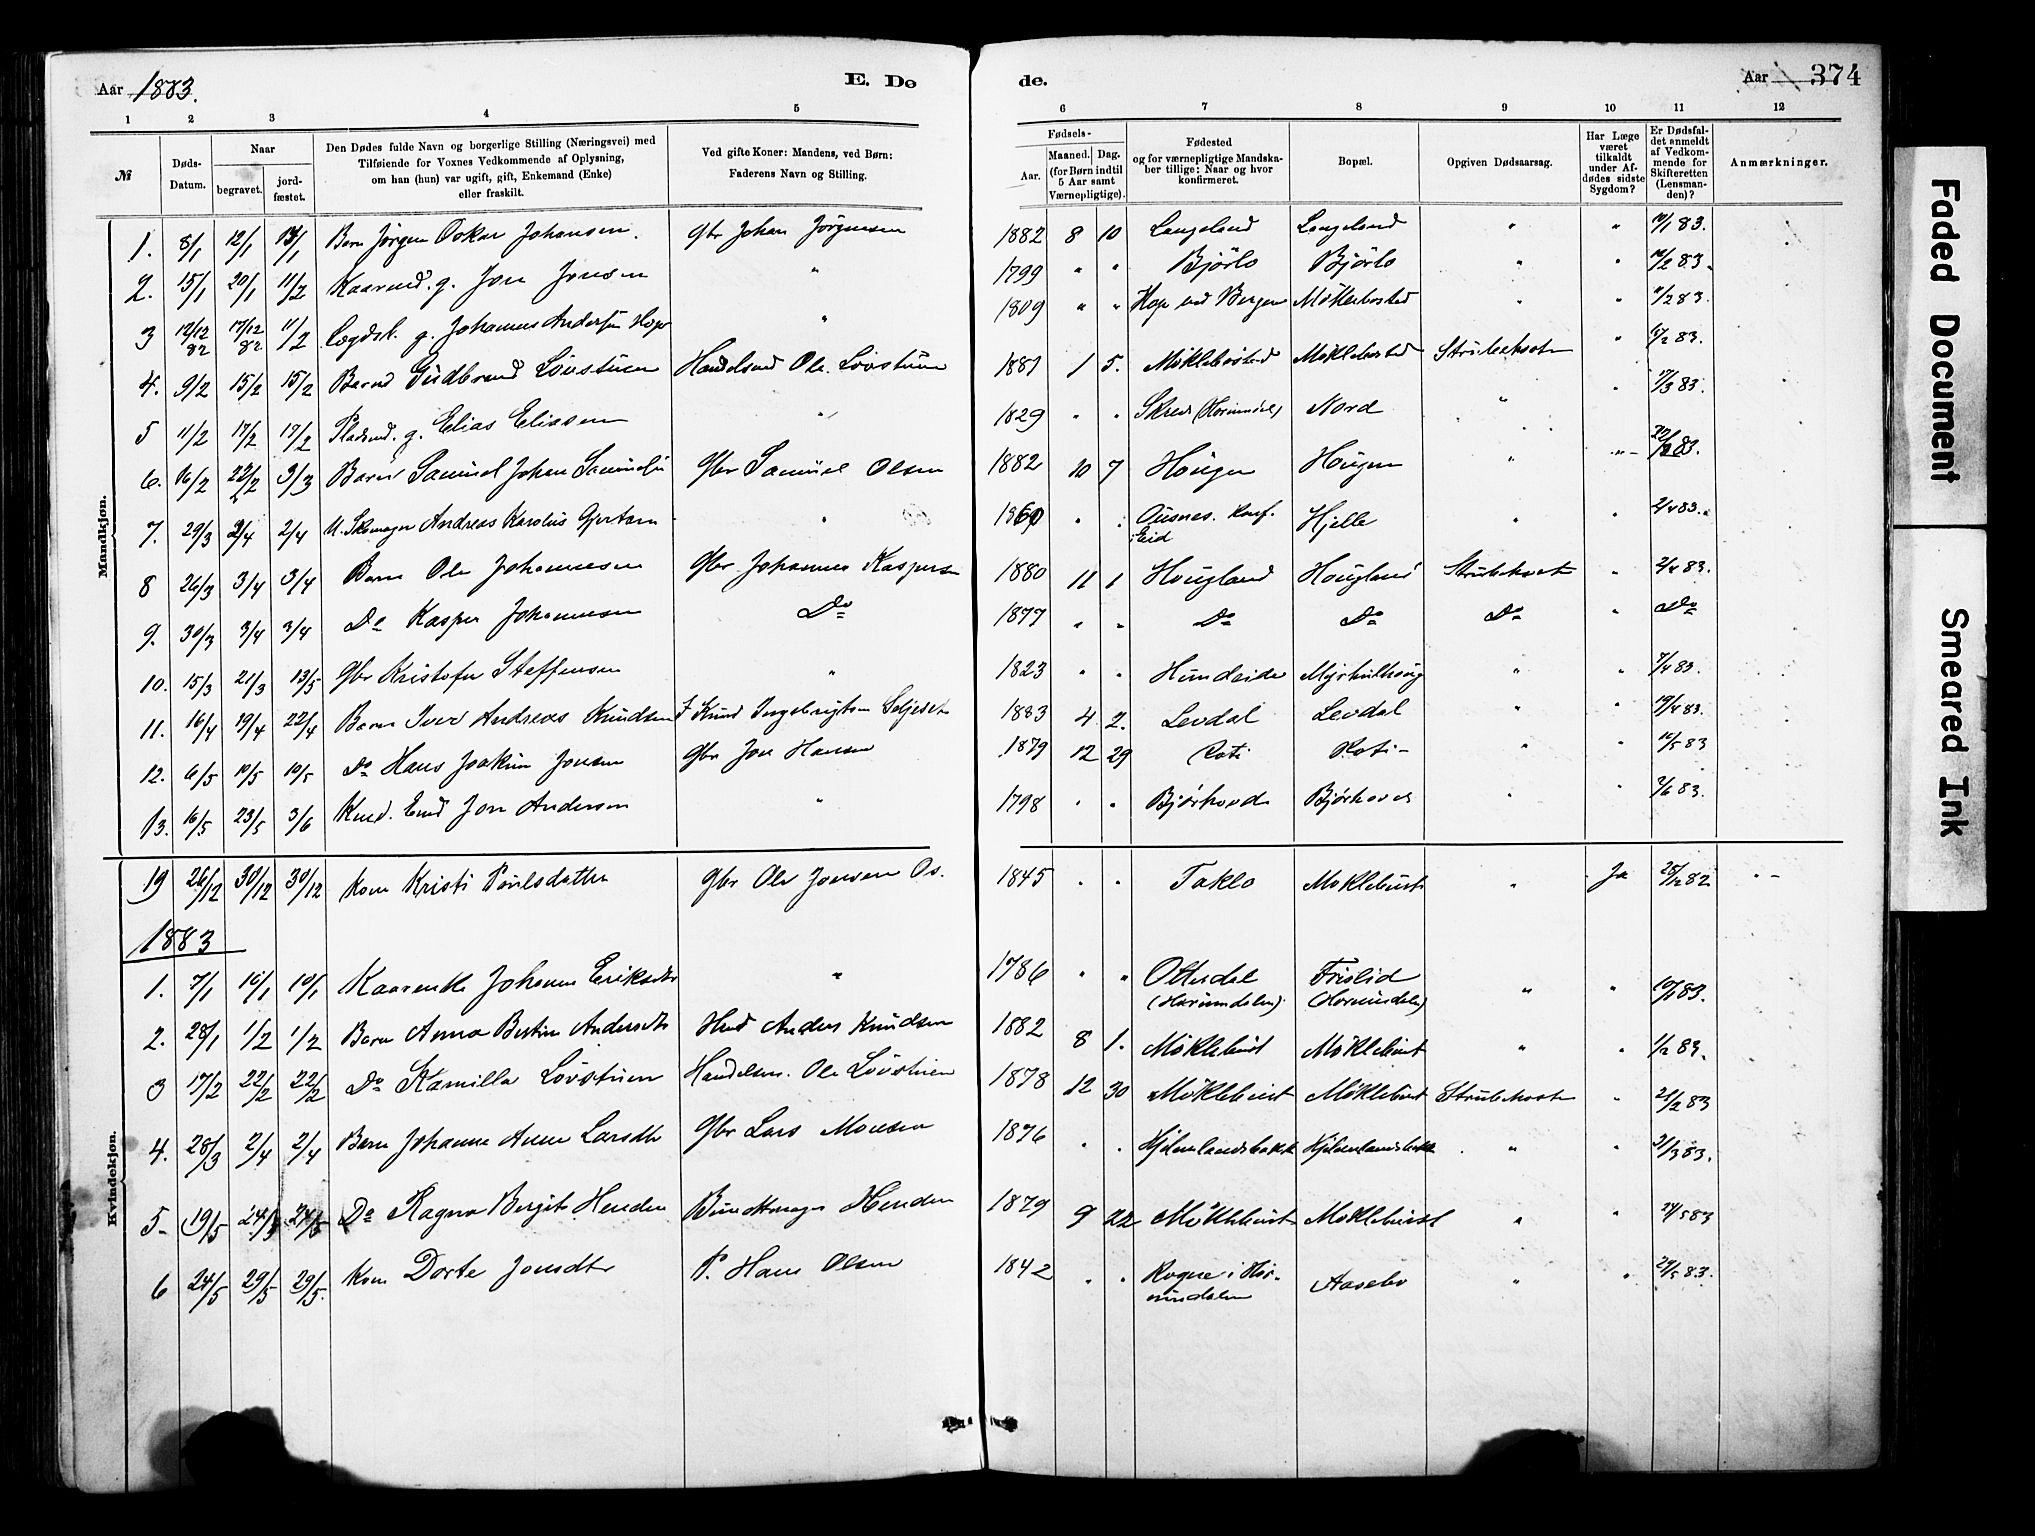 Aar 1883. E. Dø de. Aar 374
1 2 3 4 5 6 7 8 9 10 11 12
№ Døds-Datum. Naar begravet. jord-fæstet. Den Dødes fulde Navn og borgerlige Stilling (Næringsvei) med Tilføiende for Voxnes Vedkommende af Oplysning, om han (hun) var ugift, gift, Enkemand (Enke) eller fraskilt. Ved gifte Koner: Mandens, ved Børn: Faderens Navn og Stilling. Fødsels- Aar. Maaned. Dag. (for Børn indtil 5 Aar samt Værnepligtige). Fødested og for værnepligtige Mandskaber tillige: Naar og hvor konfirmeret. Bopæl. Opgiven Dødsaarsag. Har Læge været tilkaldt under Afdødes sidste Sygdom? Er Dødsfaldet anmeldt af Vedkommende for Skifteretten (Lensmanden)? Anmærkninger.
Mandkjøn.
1. 8/1 12/1 13/1 Barn Jørgen Oskar Johansen. Gbr Johan Jørgensen 1882 8 10 Langeland Langeland " "
2. 15/1 20/1 11/2 Kaarmd. g. Jon Jonsen " 1799 " " Bjørlo Bjørlo " " 10/2 83.
3 12/12 82 17/12 82 11/2 Lægdsl. g. Johannes Andersen Hope " 1809 " " Hop ved Bergen Møklebosted " " 11/2 83.
4. 9/2 15/2 15/2 Barn Gudbrand Lövstuen Handelsmd Ole Lövstuen 1881 1 5. Møklebosted Møklebosted Strubehoste "
5 11/2 17/2 17/2 Pladsmd. g. Elias Eliasen " 1829 " " Skred (Hornindal) Nord "
6. 16/2 22/2 3/3 Barn Samuel Johan Samuelsen Gbr Samuel Olsen 1882 10 7 Hougen Hougen " "
7. 29/3 2/4 2/4 U. Skomager Andreas Karolus Gjertsen " 1860 " " Ousnes. Konf. i Eid Hjelle " " 2/4 83.
8 26/3 3/4 3/4 Barn Ole Johannesen Gbr Johannes Kaspersen 1880 11 1 Hougland Hougland Strubehoste " 2/4 83.
9. 30/3 3/4 3/4 Do Kasper Johannesen Do 1877 " " Do Do Do " Do
10. 15/3 21/3 13/5 Gbr Kristofer Steffensen " 1823 " " Hundeide " " 7/4 83.
11. 16/4 19/4 22/4 Barn Iver Andreas Knudsen F Knud Ingebrigtsen Seljeset 1883 4 2. Levdal Levdal " " 19/4 83.
12. 6/5 10/5 10/5 Do Hans Joakim Jonsen Gbr Jon Hansen 1879 12 29 Roti Roti " " 10/5 83
13. 16/5 23/5 3/6 Kmd. Emd Jon Andersen " 1798 " " Bjørhovde Bjørhovde " " 2/6 83.
19 26/12 30/12 30/12 Kone Kristi Poulsdatter Gbr Ole Jonsen Os. 1845 " " Taklo Moklebust " Ja 28/12 82
1883
Kvindekjøn.
1. 7/1 10/1 10/1 Kaarenke Johanne Eriksdtr " 1786 " " Otterdal (Hornindalen) Frislid (Hornindalen) " " 10/1 83.
2. 28/1 1/2 1/2 Barn Anna Bertine Andersdtr Hmd Anders Knudsen 1882 8 1. Møklebust Møklebust " " 1/2 83.
3 17/2 22/2 22/2 Do Kamilla Lövstuen Handelsm. Ole Lövstuen 1878 12 30 Møklebust Møklebust Strubehoste " 21/2 83
4. 28/3 2/4 2/4 Barn Johanne Anne Larsdtr Gbr Lars Monsen 1876 " " Hjelmelandsbakk Hjelmelandsbakk " " 31/3 83.
5 19/5 24/5 24/5 Do Ragna Bergit Henden Buntmager Henden 1879 9 22 Møklebust Moklebust " " 24/5 83
6 24/5 29/5 29/5. Kone Dorte Jonsdtr P. Hans Olsen 1842 " " Rogne i Hornindalen Aasebo " " 29/5 83.
Faded Document
Smeared Ink